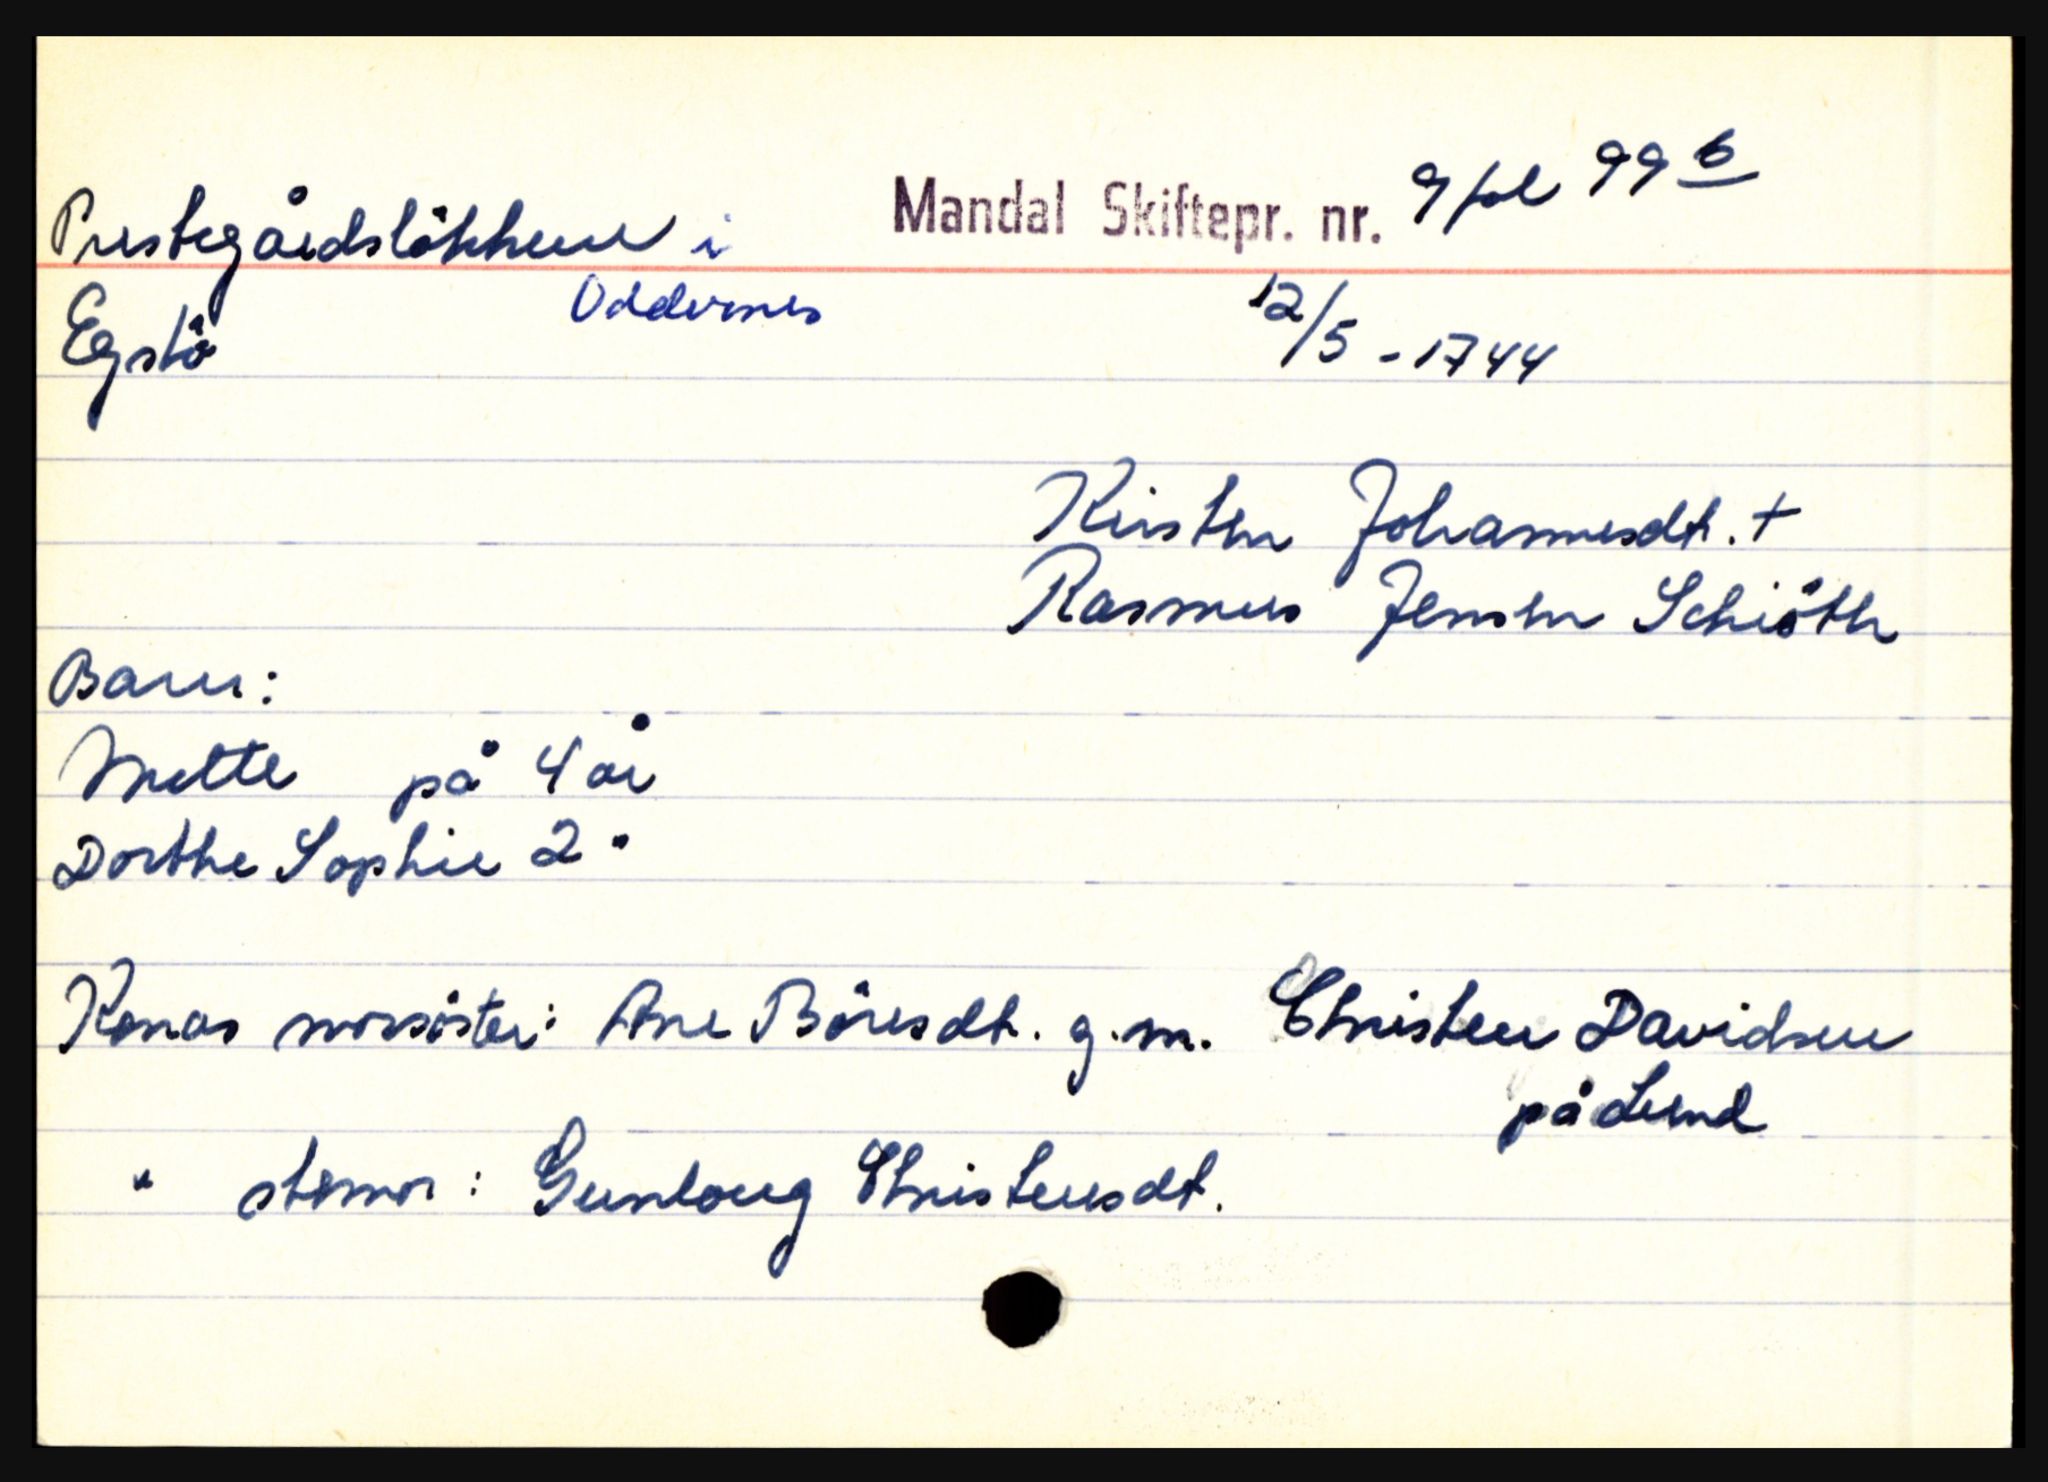 Prestegårdslökken i
Mandal Skiftepr. nr. 9 fol 99 b
Oddernes
Egstö
12/5 - 1744
Kirsten Johannesdt. +
Rasmus Jensen Schiöth
Barn:
Mette på 4 år
Dorthe Sophie 2 "
Konas morsöster: Ane Böresdt. g.m. Christen Davidsen
på Lund
" stemor: Gunloug Christensdt.